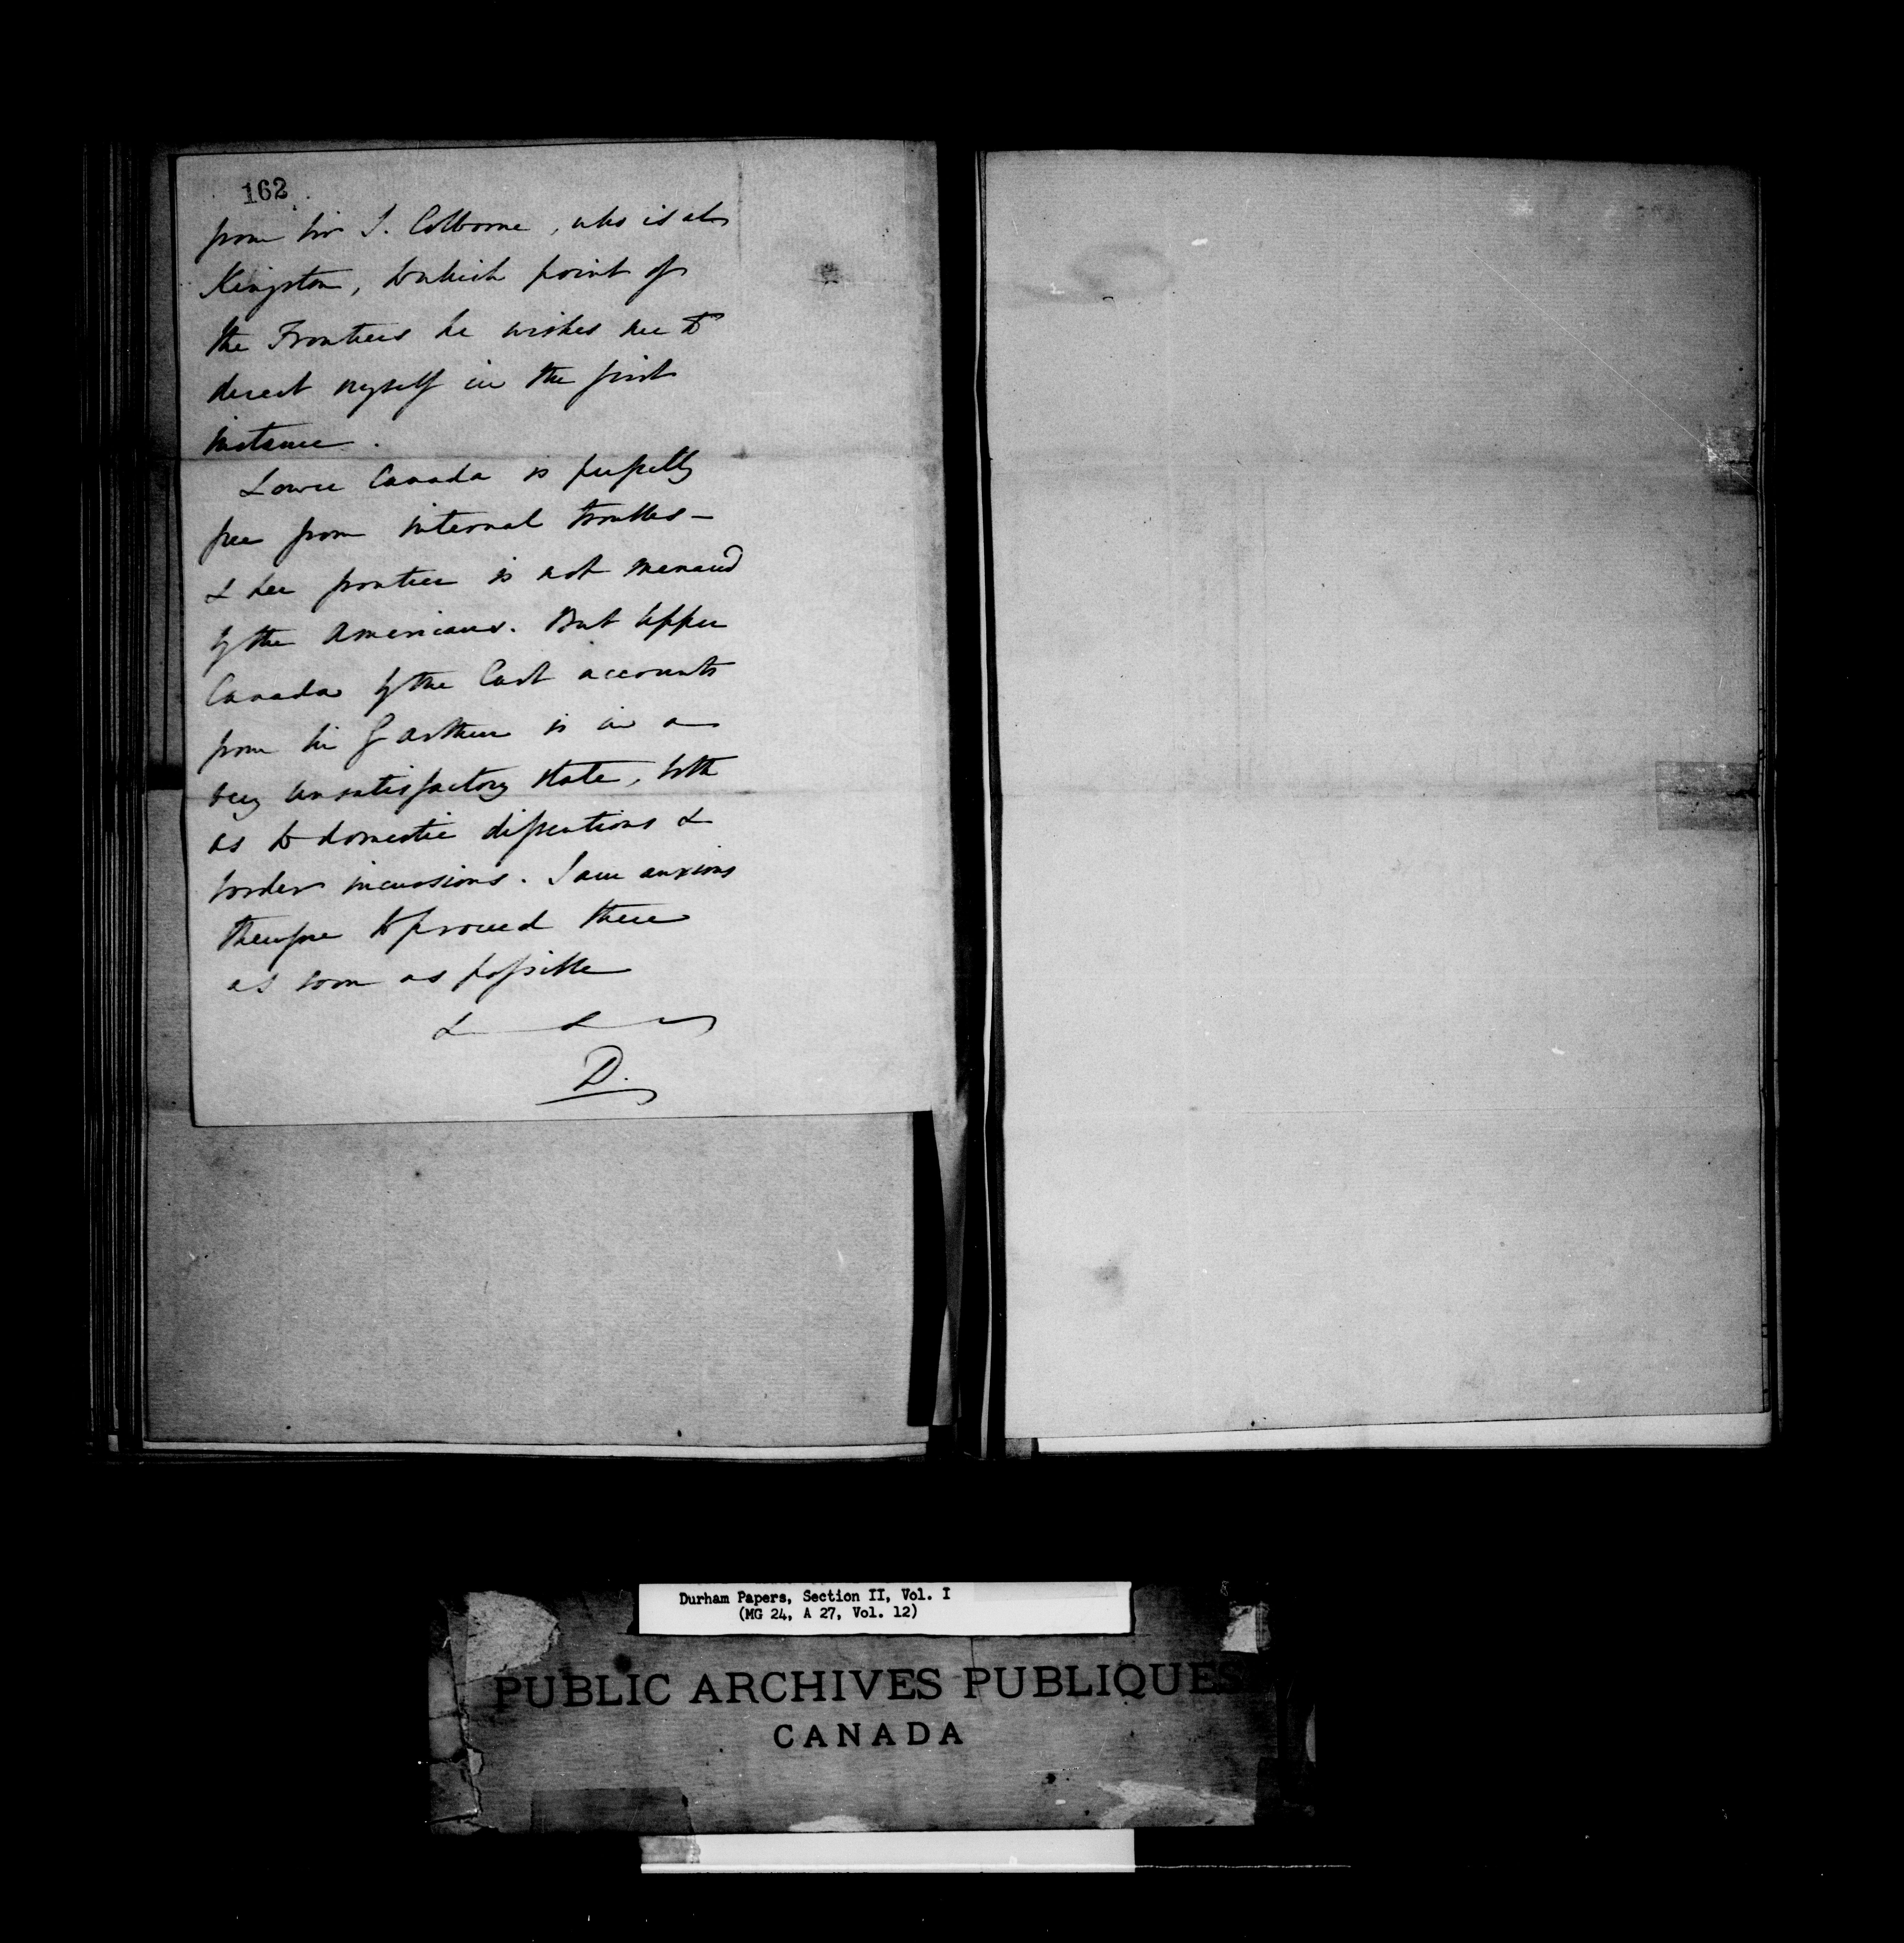 162
from Sir J. Colborne, who is at
Kingston, to which point of
the Frontiers he wishes me to
direct myself in the first
instance.
Lower Canada is perfectly
free from internal troubles —
& her frontier is not menaced
by the Americans. But Upper
Canada by the last accounts
from Sir G Arthur is in a
very unsatisfactory state, both
as to domestic dissentions &
border incursions. I am anxious
therefore to proceed there
as soon as possible
& &
D.
Durham Papers, Section II, Vol. I
(MG 24, A 27, Vol. 12)
PUBLIC ARCHIVES PUBLIQUES
CANADA